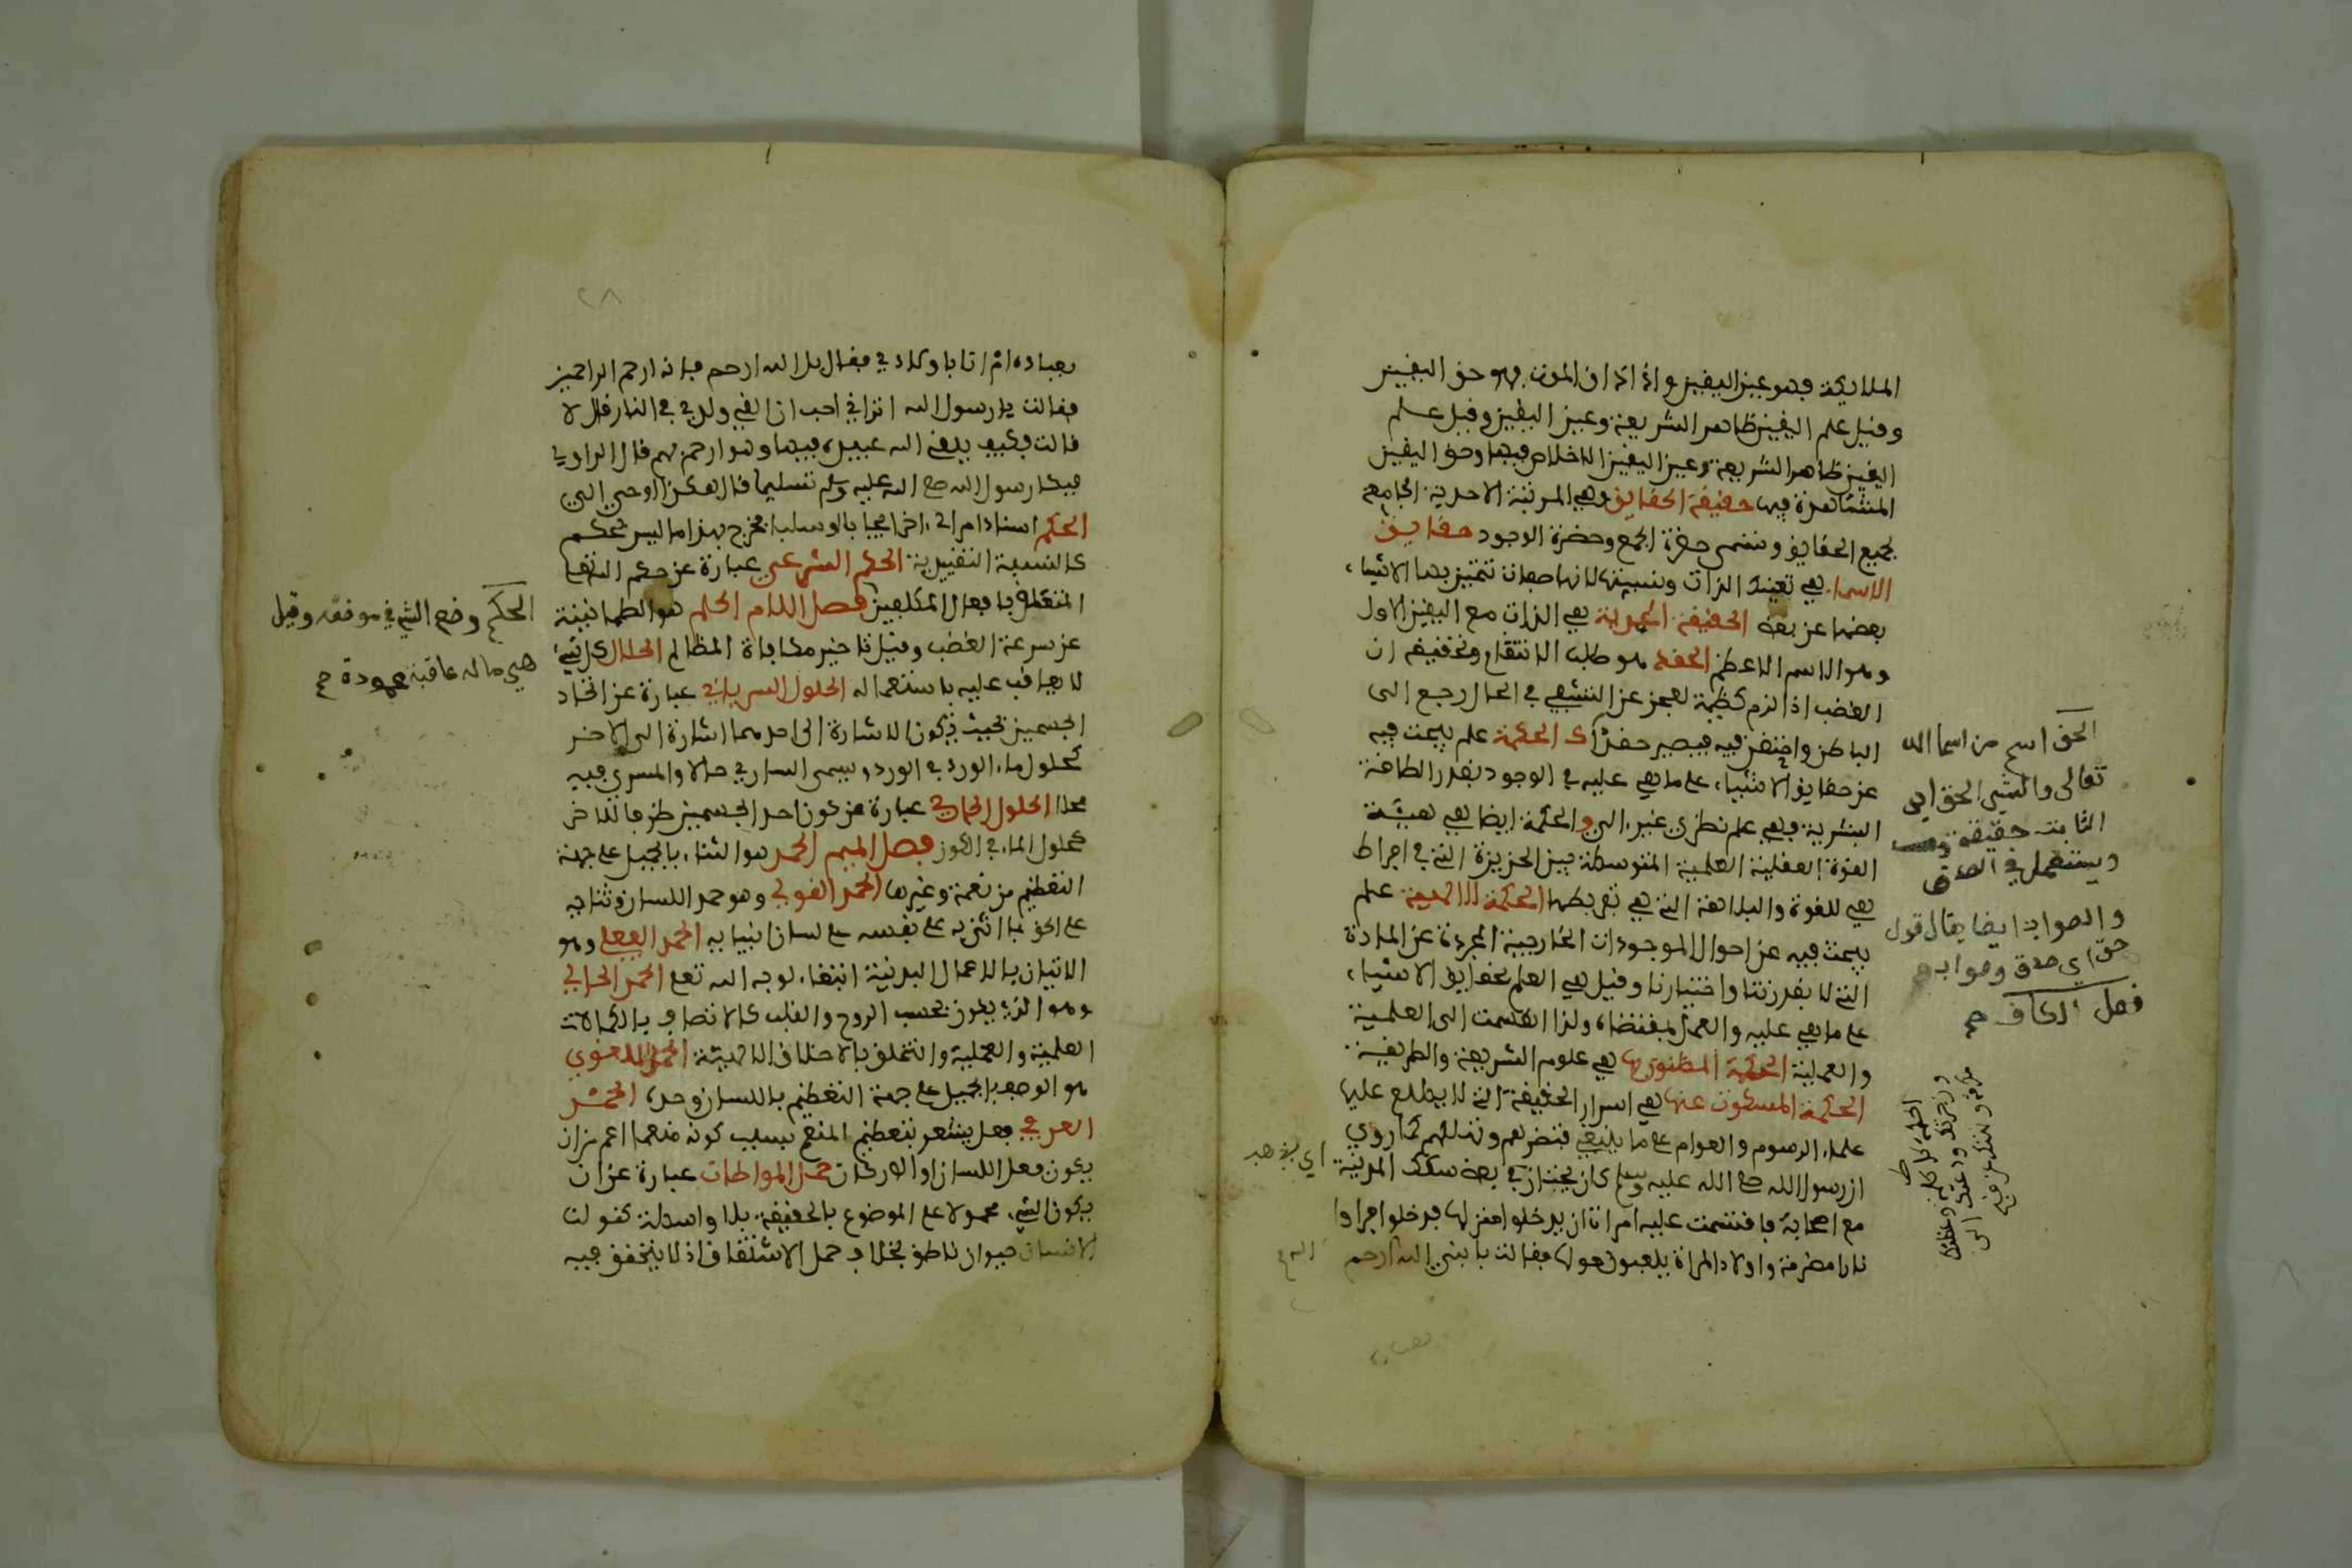 الملايكة فهو عين اليقين واذا اذاق الموت فهو حق اليقين
وقيل علم اليقين ظاهر الشريعة وعين اليقين وقيل علم
اليقين ظاهر الشريعة وعين اليقين الاخلاص فيها وحق اليقين
المشاهدة فيها حقيقة الحقايق وهي المرتبة الاحدية الجامع
لجميع الحقايق وتسمى حضرة الجمع وحضرة الوجود حقايق
الاسماء هي تعينات الذات ونسبتها لانها صفات تتميز بها الاشياء
بعضها عن بعض الحقيقة المحمدية هي الذات مع اليقين الاول
وهو الاسم الاعظم الحقد هو طلب الانتقام وتحقيقه ان
الغضب اذا لزم كظمه لعجز عن التشفي في الحال رجع الى
الباطن واحتقن فيه فيصير حقدا ك الحكمة علم يبحث فيه
عن حقايق الاشياء على ما هي عليه في الوجود بقدر الطاقة
البشرية وهي علم نظري غير الي والحكمة ايضا هي هيئة
القوة العقلية العلمية المتوسطة بين الجزيزة التي في افراط
هي للقوة والبلاهة التي هي تفريطها الحكمة الالاهية علم
يبحث فيه عن احوال الموجودات الخارجية المجردة عن المادة
التي لا بقدرتنا واختيارنا وقيل هي العلم بحقايق الاشياء
على ما هي عليه والعمل بمقتضاه ولذا انقسمت الى العلمية
والعملية الحكمة المنطوق بها هي علوم الشريعة والطريقة
الحكمة المسكوت عنها هي اسرار الحقيقة التي لا يطلع عليها
علماء الرسوم والعوام على ما ينبغي فتضرهم وتهلكهم كما روي
ان رسول الله صلع الله عليه وسلم كان يجتاز في بعض سكك المدينة
مع اصحابه فاقسمت عليه امراة ان يدخلوا منزلها فدخلوا فراوا
نارا مضرمة واولاد المراة يلعبون حولها فقالت يا نبي الله الله ارحم
الحق اسم من اسما الله
تعالى والشي الحق اي
الثابت حقيقة
ويستعمل في الصدق
والصواب ايضا يقال قول
حق اي صدق وصواب
فصل الكاف
بعباده ام انا باولادي فقال بل الله ارحم فانه ارحم الراحمين
فقالت يا رسول الله اتراني احب ان القي ولدي في النار قال لا
قالت فكيف يلقي الله عبيده فيها وهو ارحم بهم قال الراوي
فبكا رسول الله صلع الله عليه وسلم تسليما فقال هكذا اوحي الي
الحكم اسناد امر الى اخر ايجابا او سلبا فخرج بهذا ما ليس بحكم
كالنسبة التقييدية الحكم الشرعي عبارة عن حكم الله تعالى
المتعلق بافعال المكلفين فصل اللام الحلم هو الطمانينة
عن سورة الغضب وقيل تاخير مكافاة المظالم الحلال كل شيء
لا يعاقب عليه باستعماله الحلول السرياني عبارة عن اتحاد
الجسمين بحيث تكون الاشارة الى احدهما اشارة الى الاخر
كحلول ماء الورد في الورد ويسمى الساري حالا والمسري فيه
محلا الحلول الجواري عبارة عن كون احد الجسمين ظرفا للاخر
كحلول الماء في الكوز فصل الميم الحمد هو الثناء بالجميل على جهة
التعظيم من نعمة وغيرها الحمد القولي وهو حمد اللسان وثناءه
على الحق بما اثنى به على نفسه على لسان انبيايه الحمد الفعلي وهو
الاتيان بالاعمال البدنية ابتغاء لوجه الله تعالى الحمد الحالي
وهو الذي يكون بحسب الروح والقلب كالاتصاف بالكمالات
العلمية والعملية والتخلق بالاخلاق الالاهية الحمد اللغوي
هو الوصف بالجميل على جهة التعظيم باللسان وحده الحمد
العرفي فعل يشعر بتعظيم المنعم بسبب كونه منعما اعم من ان
يكون فعل اللسان او الاركان حمل المواطات عبارة عن ان
يكون الشيء محمولا على الموضوع بالحقيقة بلا واسطة كقولنا
الانسان حيوان ناطق بخلاف حمل الاشتقاق اذ لا يتحقق فيه
الحكم وضع الشيء في موقعه وقيل
هي ماله عاقبة محمودة
٢٨